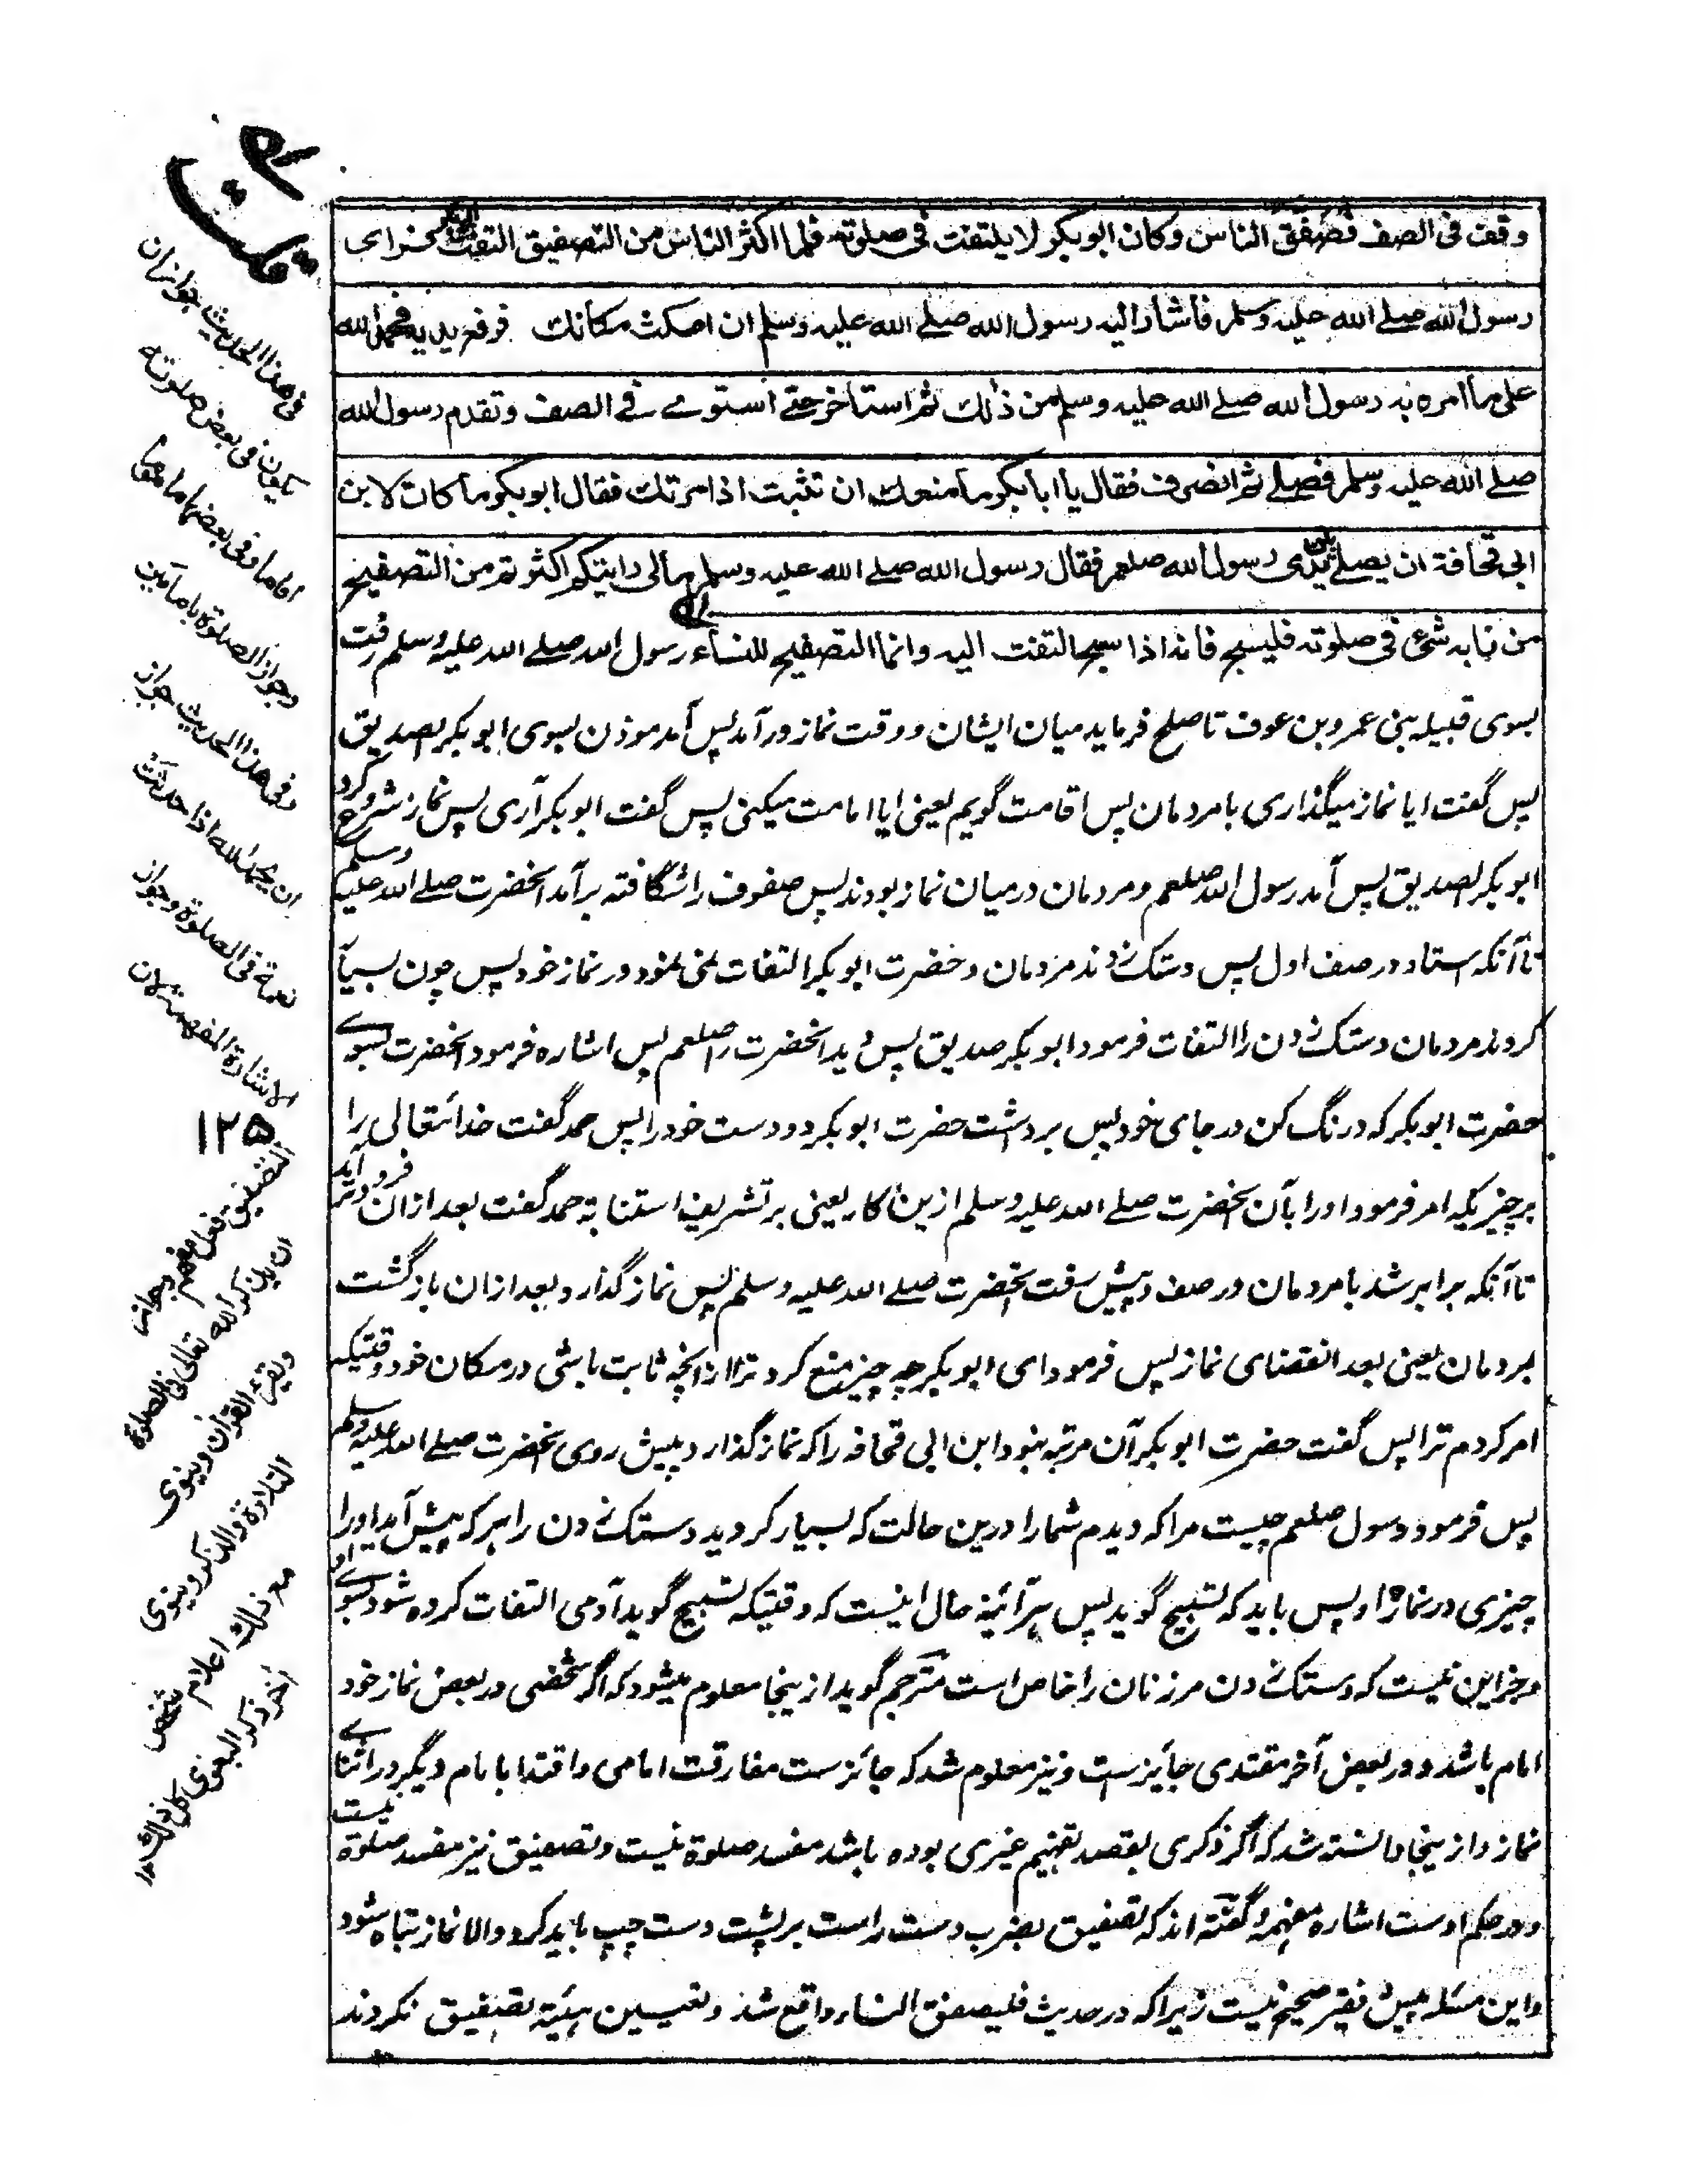 وقف فى الصف فصفق الناس وكان ابو بكر لا يلتفت فى صلوته فلما اكثر الناس من التصفيق التفت ابو بكر فراى
رسول الله صلے الله عليه وسلم فاشار اليه رسول الله صلے الله عليه وسلم ان امكث مكانك فرفع يديه فحمد الله
على ما امره به رسول الله صلے الله عليه وسلم من ذلك ثم استاخر حتے استوے فے الصف وتقدم رسول الله
صلے الله عليه وسلم فصلے ثم انصرف فقال يا ابا بكر ما منعك ان تثبت اذ امرتك فقال ابو بكر ما كان لابن
ابى قحافة ان يصلے بين يدى رسول الله صلعم فقال رسول الله صلے الله عليه وسلم مالى رايتكم اكثرتم من التصفيح
من نابه شئ فى صلوته فليسبح فانه اذا سبح التفت اليه وانما التصفيح للنساء رسول الله صلے الله عليه وسلم رفت
بسوی قبیله بنی عمرو بن عوف تا صلح فرماید میان ایشان و وقت نماز در آمد پس آمد موذن بسوی ابو بکر الصدیق
پس گفت ایا نماز میگذاری با مردمان پس اقامت گویم یعنی ایا امامت میکنی پس گفت ابو بکر آری پس نماز شروع کرد
ابو بکر الصدیق پس آمد رسول الله صلعم و مردمان درمیان نماز بودند پس صفوف را شگافته بر آمد آنحضرت صلے الله علیه وسلم
تا آنکه استاد در صف اول پس دستک زدند مردمان و حضرت ابو بکر التفات نمی نمود در نماز خود پس چون بسیار
کردند مردمان دستک زدن را التفات فرمود ابو بکر صدیق پس دید آنحضرت را صلعم پس اشاره فرمود آنحضرت بسوے
حضرت ابو بکر که درنگ کن در جای خود پس برداشت حضرت ابو بکر دو دست خود را پس حمد گفت خدا تعالی را
بر چیزیکه امر فرمود او را بآن آنحضرت صلے الله علیه وسلم ازین کار یعنی بر تشریف استنابة حمد گفت بعد ازان فرود تر آمد
تا آنکه برابر شد با مردمان در صف و پیش رفت آنحضرت صلے الله علیه وسلم پس نماز گذارد و بعد ازان باز گشت
بمردمان یعنی بعد انقضای نماز پس فرمود ای ابو بکر چه چیز منع کرد ترا از انچه ثابت باشی در مکان خود وقتیکه
امر کردم ترا پس گفت حضرت ابو بکر آن مرتبه نبود ابن ابی قحافه را که نماز گذارد پیش روی آنحضرت صلے الله علیه وسلم
پس فرمود رسول صلعم چیست مرا که دیدم شما را درین حالت که بسیار کردید دستک زدن را هر که پیش آید او را
چیزی در نماز او پس باید که تسبیح گوید پس هر آئینه حال اینست که وقتیکه تسبیح گوید آدمی التفات کرده شود بسوے او
و جز این نیست که دستک زدن مر زنان را خاص است مترجم گوید از ینجا معلوم میشود که اگر شخصی در بعض نماز خود
امام باشد و در بعض آخر مقتدی جایز است و نیز معلوم شد که جائزست مفارقت امامی و اقتدا بامام دیگر در اثناے
نماز و از ینجا دانسته شد که اگر ذکری بقصد تفهیم غیری بوده باشد مفسد صلوة نیست و تصفیق نیز مفسد صلوة نیست
و در حکم اوست اشاره مفهمه و گفته اند که تصفیق بضرب دست راست بر پشت دست چپ باید کرد والا نماز تباه شود
و این مسئله پیش فقیر صحیح نیست زیرا که در حدیث فلیصفق النساء واقع شد و تعیین هیئة تصفیق نکردند
فى هذا الحديث جواز ان
يكون فى بعض صلوته
اماما وفى بعضها ماموما
وجواز الصلوة بامامين
وفى هذا الحديث جواز
ان يحمد الله اذا حدثت
نعمة فى الصلوة وجواز
الاشارة المفهمة لان
١٢٥
التصفيق فعل مفهم وجواز
ان يذكر الله تعالى فى الصلوة
ويقرء القرآن وينوى
التلاوة والذكر وينوى
مع ذلك اعلام شخص
آخر ذكر البغوى كل ذلك